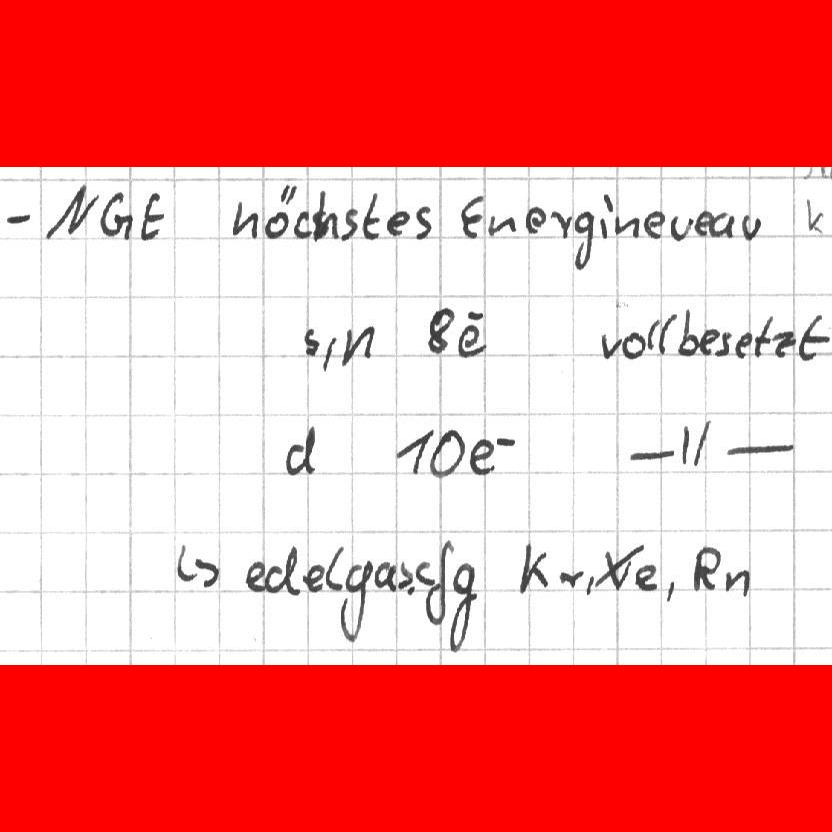 - NGE höchstes Energineveau k
s,n 8ē vollbesetzt
d 10e⁻ —||—
↳ edelgascfg Kr, Xe, Rn